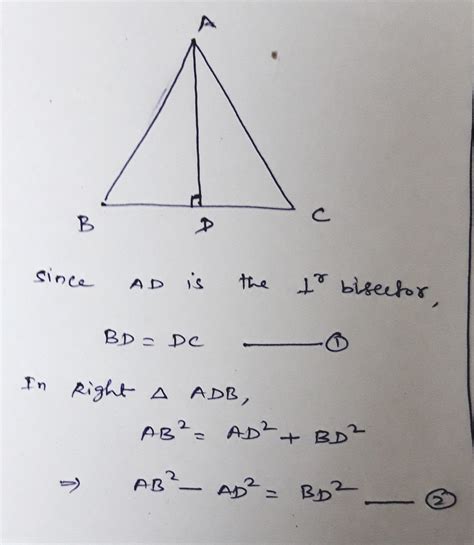 A
B D C
since AD is the ⊥ʳ bisector,
BD = DC ——— ①
In Right Δ ADB,
AB² = AD² + BD²
⇒ AB² - AD² = BD² —— ②